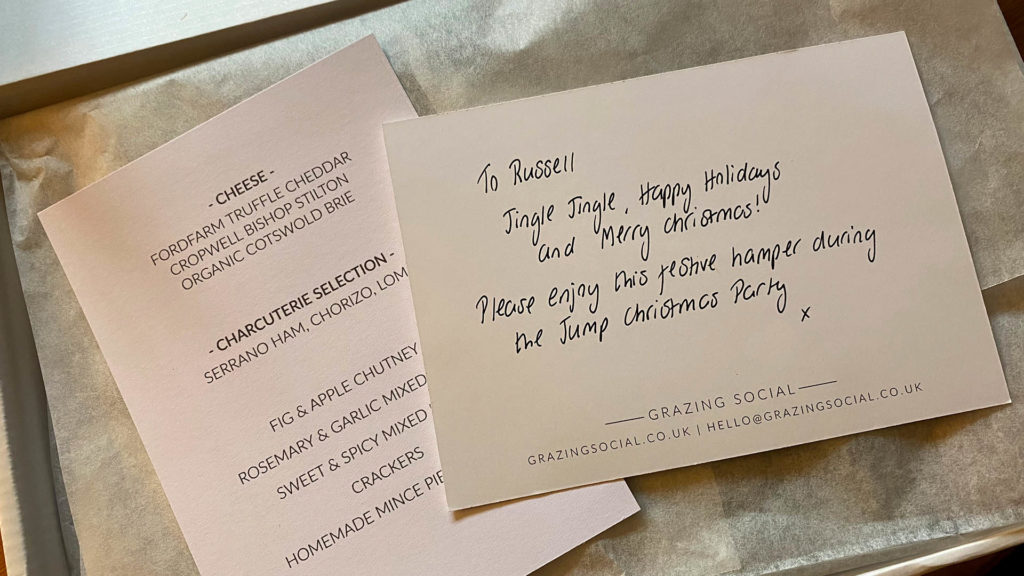 - CHEESE -
FORDFARM TRUFFLE CHEDDAR
CROPWELL BISHOP STILTON
ORGANIC COTSWOLD BRIE
- CHARCUTERIE SELECTION -
SERRANO HAM, CHORIZO, LOM
FIG & APPLE CHUTNEY
ROSEMARY & GARLIC MIXED
SWEET & SPICY MIXED
CRACKERS
HOMEMADE MINCE PIE
To Russell
Jingle Jingle, Happy Holidays
and Merry Christmas!
Please enjoy this festive hamper during
the Jump Christmas Party
x
GRAZING SOCIAL
GRAZINGSOCIAL.CO.UK | HELLO@GRAZINGSOCIAL.CO.UK